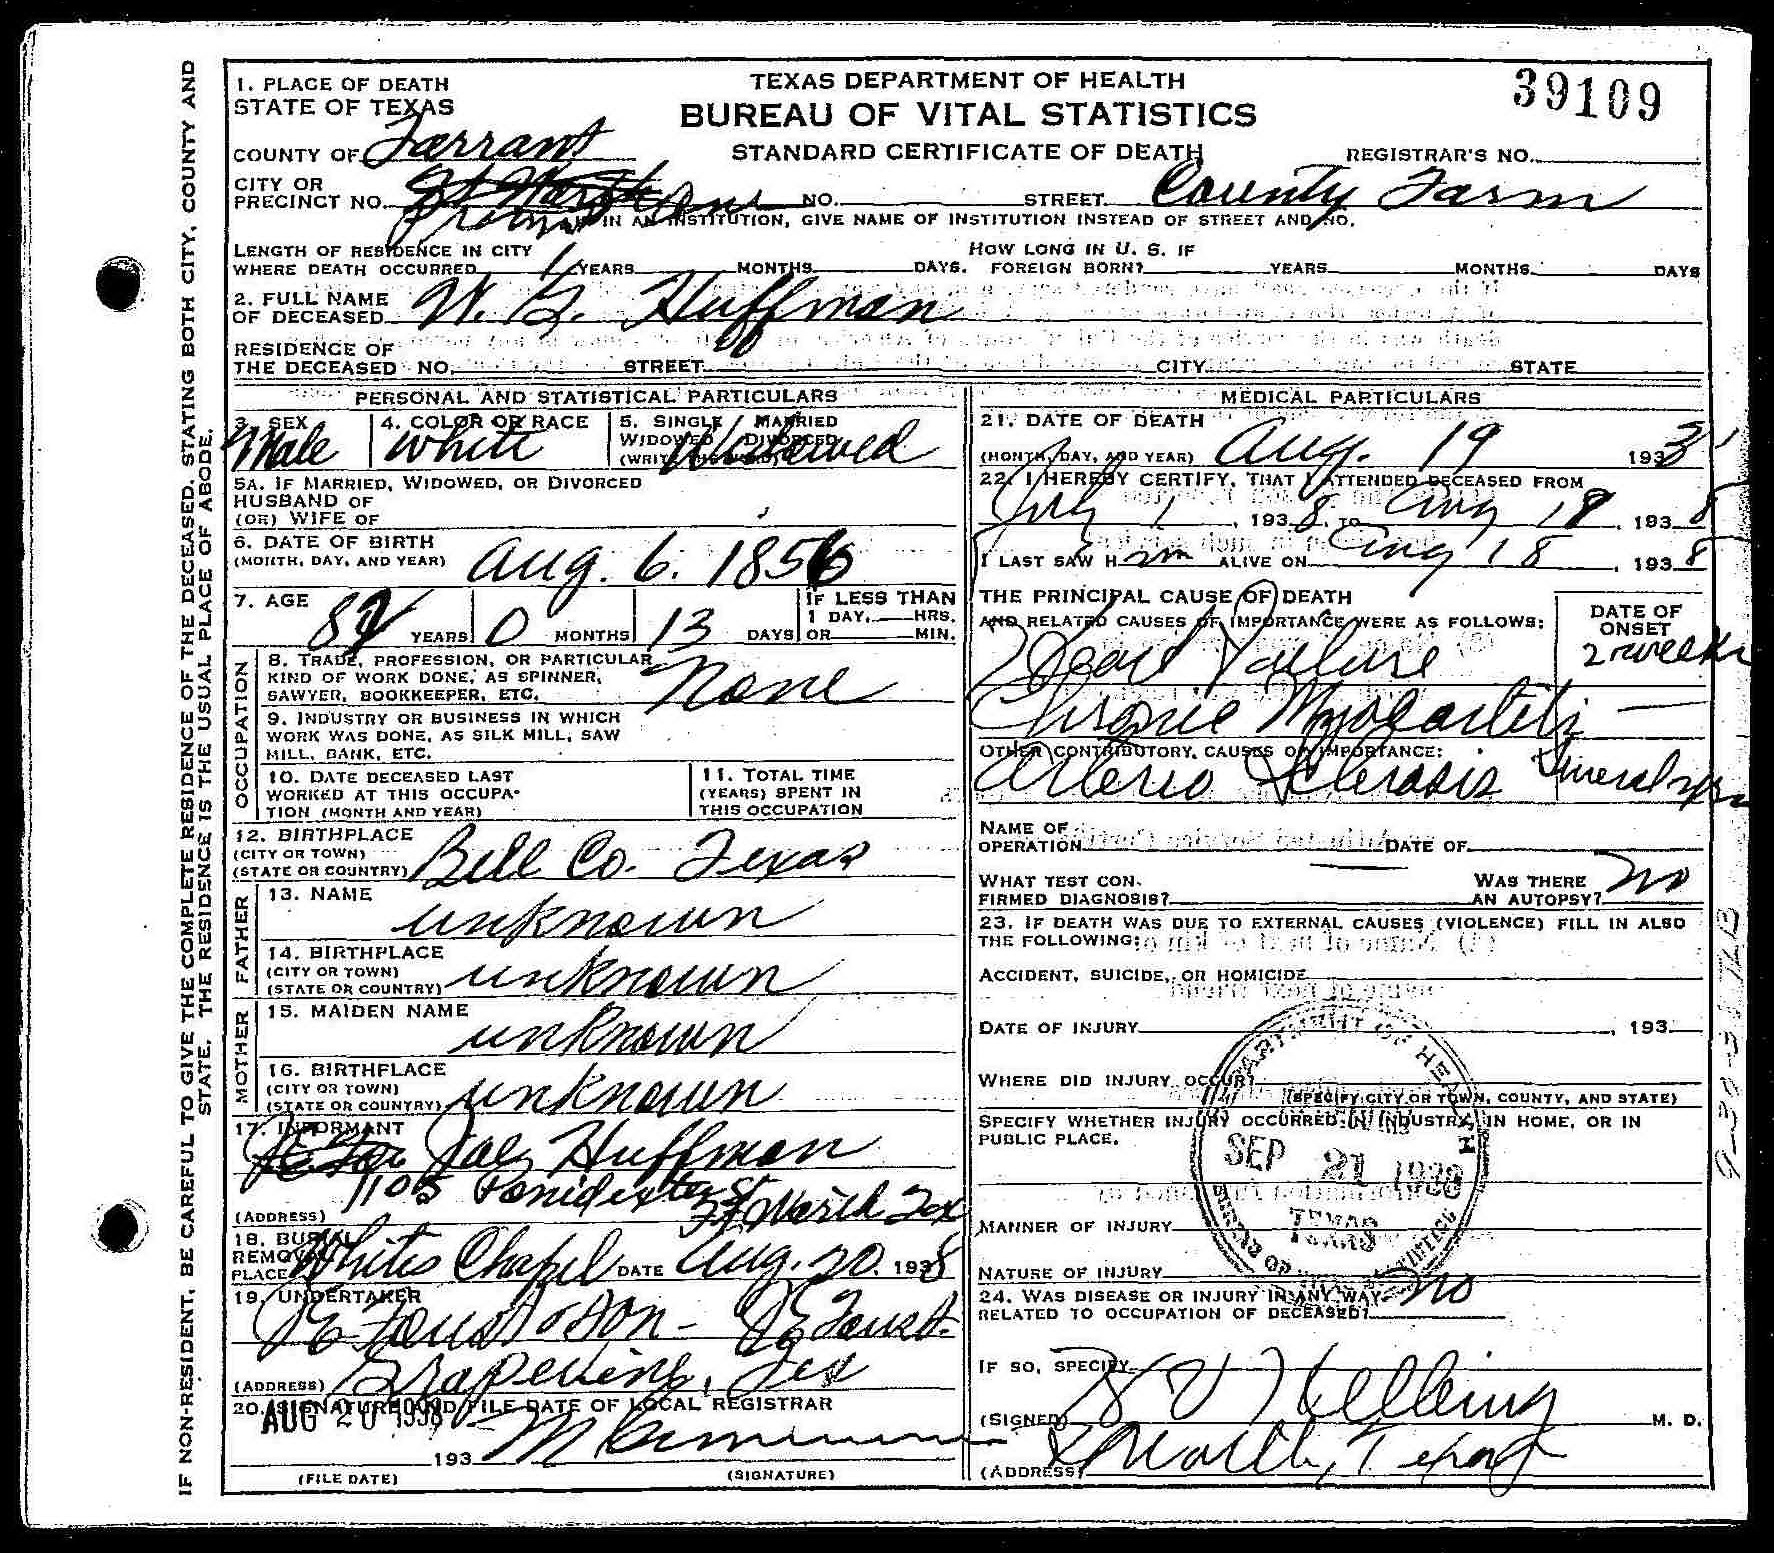 39109
TEXAS DEPARTMENT OF HEALTH
BUREAU OF VITAL STATISTICS
STANDARD CERTIFICATE OF DEATH
REGISTRAR'S NO.
IF NON-RESIDENT, BE CAREFUL TO GIVE THE COMPLETE RESIDENCE OF THE DECEASED, STATING BOTH CITY, COUNTY AND
STATE. THE RESIDENCE IS THE USUAL PLACE OF ABODE.
1. PLACE OF DEATH
STATE OF TEXAS
COUNTY OF Tarrant
CITY OR
PRECINCT NO. Ft Worth One NO. STREET County Farm
IN AN INSTITUTION, GIVE NAME OF INSTITUTION INSTEAD OF STREET AND NO.
LENGTH OF RESIDENCE IN CITY HOW LONG IN U. S. IF
WHERE DEATH OCCURRED 1 YEARS MONTHS DAYS. FOREIGN BORN? YEARS MONTHS DAYS
2. FULL NAME
OF DECEASED W. G. Huffman
RESIDENCE OF
THE DECEASED NO. STREET CITY STATE
PERSONAL AND STATISTICAL PARTICULARS
3. SEX 4. COLOR OR RACE 5. SINGLE MARRIED
WIDOWED DIVORCED
(WRITE THE WORD)
Male White Widowed
5A. IF MARRIED, WIDOWED, OR DIVORCED
HUSBAND OF
(OR) WIFE OF
6. DATE OF BIRTH
(MONTH, DAY, AND YEAR) Aug. 6. 1856
7. AGE IF LESS THAN
82 YEARS 0 MONTHS 13 DAYS 1 DAY, HRS.
OR MIN.
OCCUPATION
8. TRADE, PROFESSION, OR PARTICULAR
KIND OF WORK DONE, AS SPINNER,
SAWYER, BOOKKEEPER, ETC. None
9. INDUSTRY OR BUSINESS IN WHICH
WORK WAS DONE, AS SILK MILL, SAW
MILL, BANK, ETC.
10. DATE DECEASED LAST
WORKED AT THIS OCCUPA-
TION (MONTH AND YEAR)
11. TOTAL TIME
(YEARS) SPENT IN
THIS OCCUPATION
12. BIRTHPLACE
(CITY OR TOWN)
(STATE OR COUNTRY) Bell Co. Texas
FATHER
13. NAME
unknown
14. BIRTHPLACE
(CITY OR TOWN)
(STATE OR COUNTRY) unknown
MOTHER
15. MAIDEN NAME
unknown
16. BIRTHPLACE
(CITY OR TOWN)
(STATE OR COUNTRY) unknown
17. INFORMANT
Joe Huffman
1105
(ADDRESS) Ft Worth Tex
18. BURIAL
REMOVAL
PLACE Whites Chapel DATE Aug. 20. 1938
19. UNDERTAKER
J E Foust & Son - J E Foust.
(ADDRESS) Grapevine, Tex
20. SIGNATURE AND FILE DATE OF LOCAL REGISTRAR
AUG 20 1938
193
(FILE DATE) (SIGNATURE)
MEDICAL PARTICULARS
21. DATE OF DEATH
(MONTH, DAY, AND YEAR) Aug. 19 1938
22. I HEREBY CERTIFY, THAT I ATTENDED DECEASED FROM
July 1, 1938, TO Aug 18, 1938
I LAST SAW H im ALIVE ON Aug 18, 1938
THE PRINCIPAL CAUSE OF DEATH
AND RELATED CAUSES OF IMPORTANCE WERE AS FOLLOWS:
DATE OF
ONSET
Heart Failure 2 weeks
Chronic Myocarditis —
OTHER CONTRIBUTORY CAUSES OF IMPORTANCE:
Arterio Sclerosis Several yrs
NAME OF
OPERATION DATE OF
WHAT TEST CON-
FIRMED DIAGNOSIS?
WAS THERE
AN AUTOPSY? no
23. IF DEATH WAS DUE TO EXTERNAL CAUSES (VIOLENCE) FILL IN ALSO
THE FOLLOWING:
ACCIDENT, SUICIDE, OR HOMICIDE
DATE OF INJURY , 193
WHERE DID INJURY OCCUR?
(SPECIFY CITY OR TOWN, COUNTY, AND STATE)
SPECIFY WHETHER INJURY OCCURRED IN INDUSTRY, IN HOME, OR IN
PUBLIC PLACE.
SEP 21 1938
TEXAS
MANNER OF INJURY
NATURE OF INJURY
24. WAS DISEASE OR INJURY IN ANY WAY
RELATED TO OCCUPATION OF DECEASED? no
IF SO, SPECIFY
(SIGNED) M. D.
(ADDRESS) Ft Worth, Texas